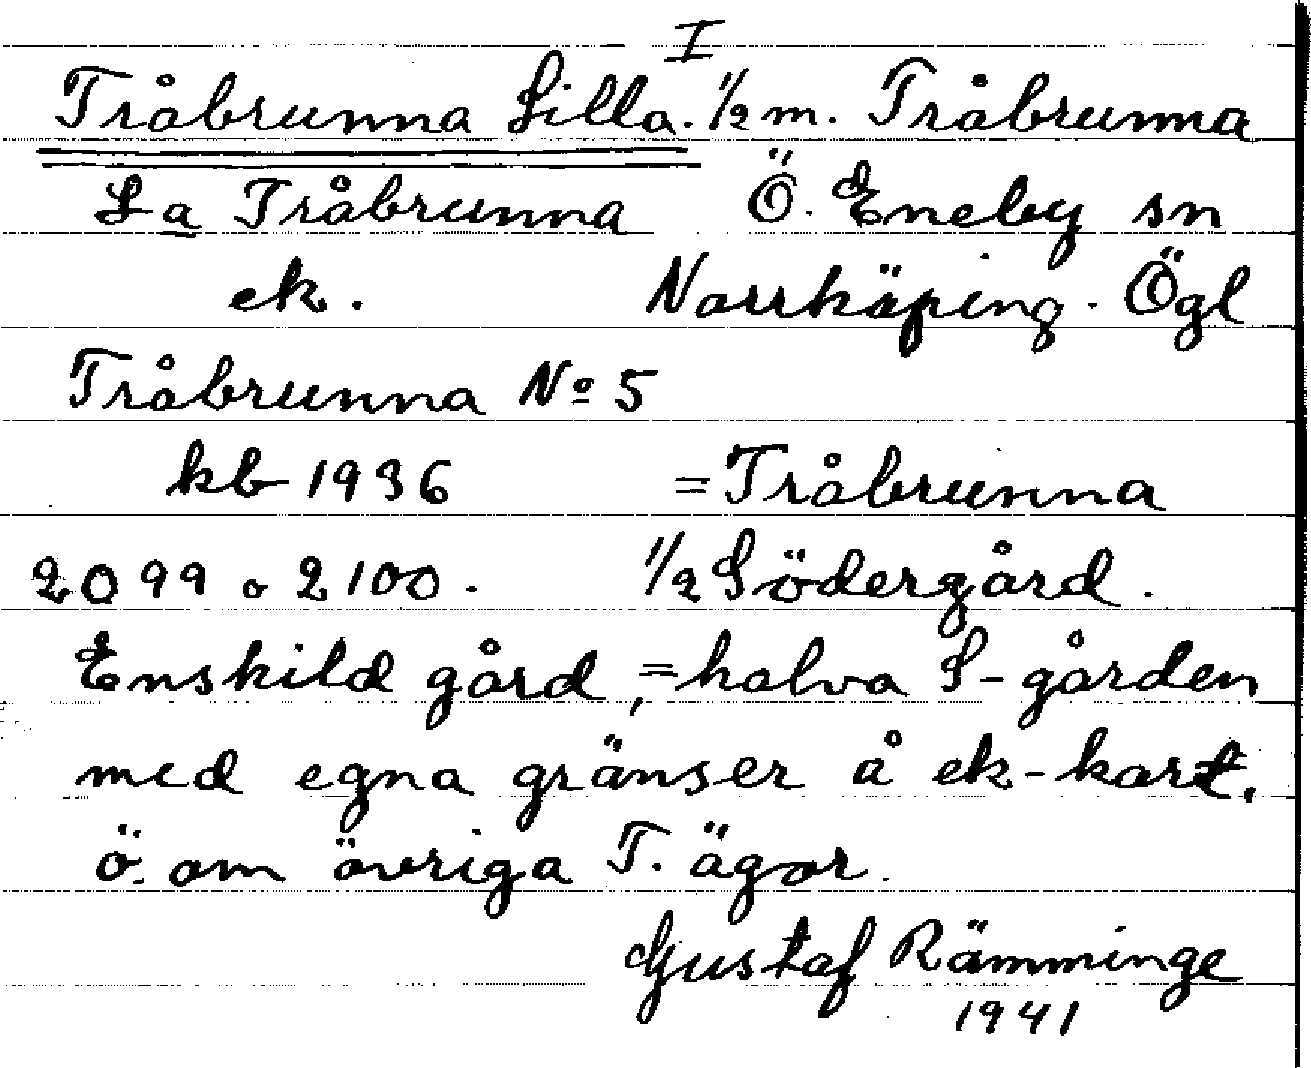 I
Tråbrunna Lilla. 1/2 m. Tråbrunna
La Tråbrunna Ö. Eneby sn
ek. Norrköping. Ögl
Tråbrunna No 5
kb 1936 = Tråbrunna
2099 o 2100. 1/2 Södergård.
Enskild gård, = halva S-gården
med egna gränser å ek-kart.
ö. om övriga T. ägor.
Gustaf Rämminge
1941